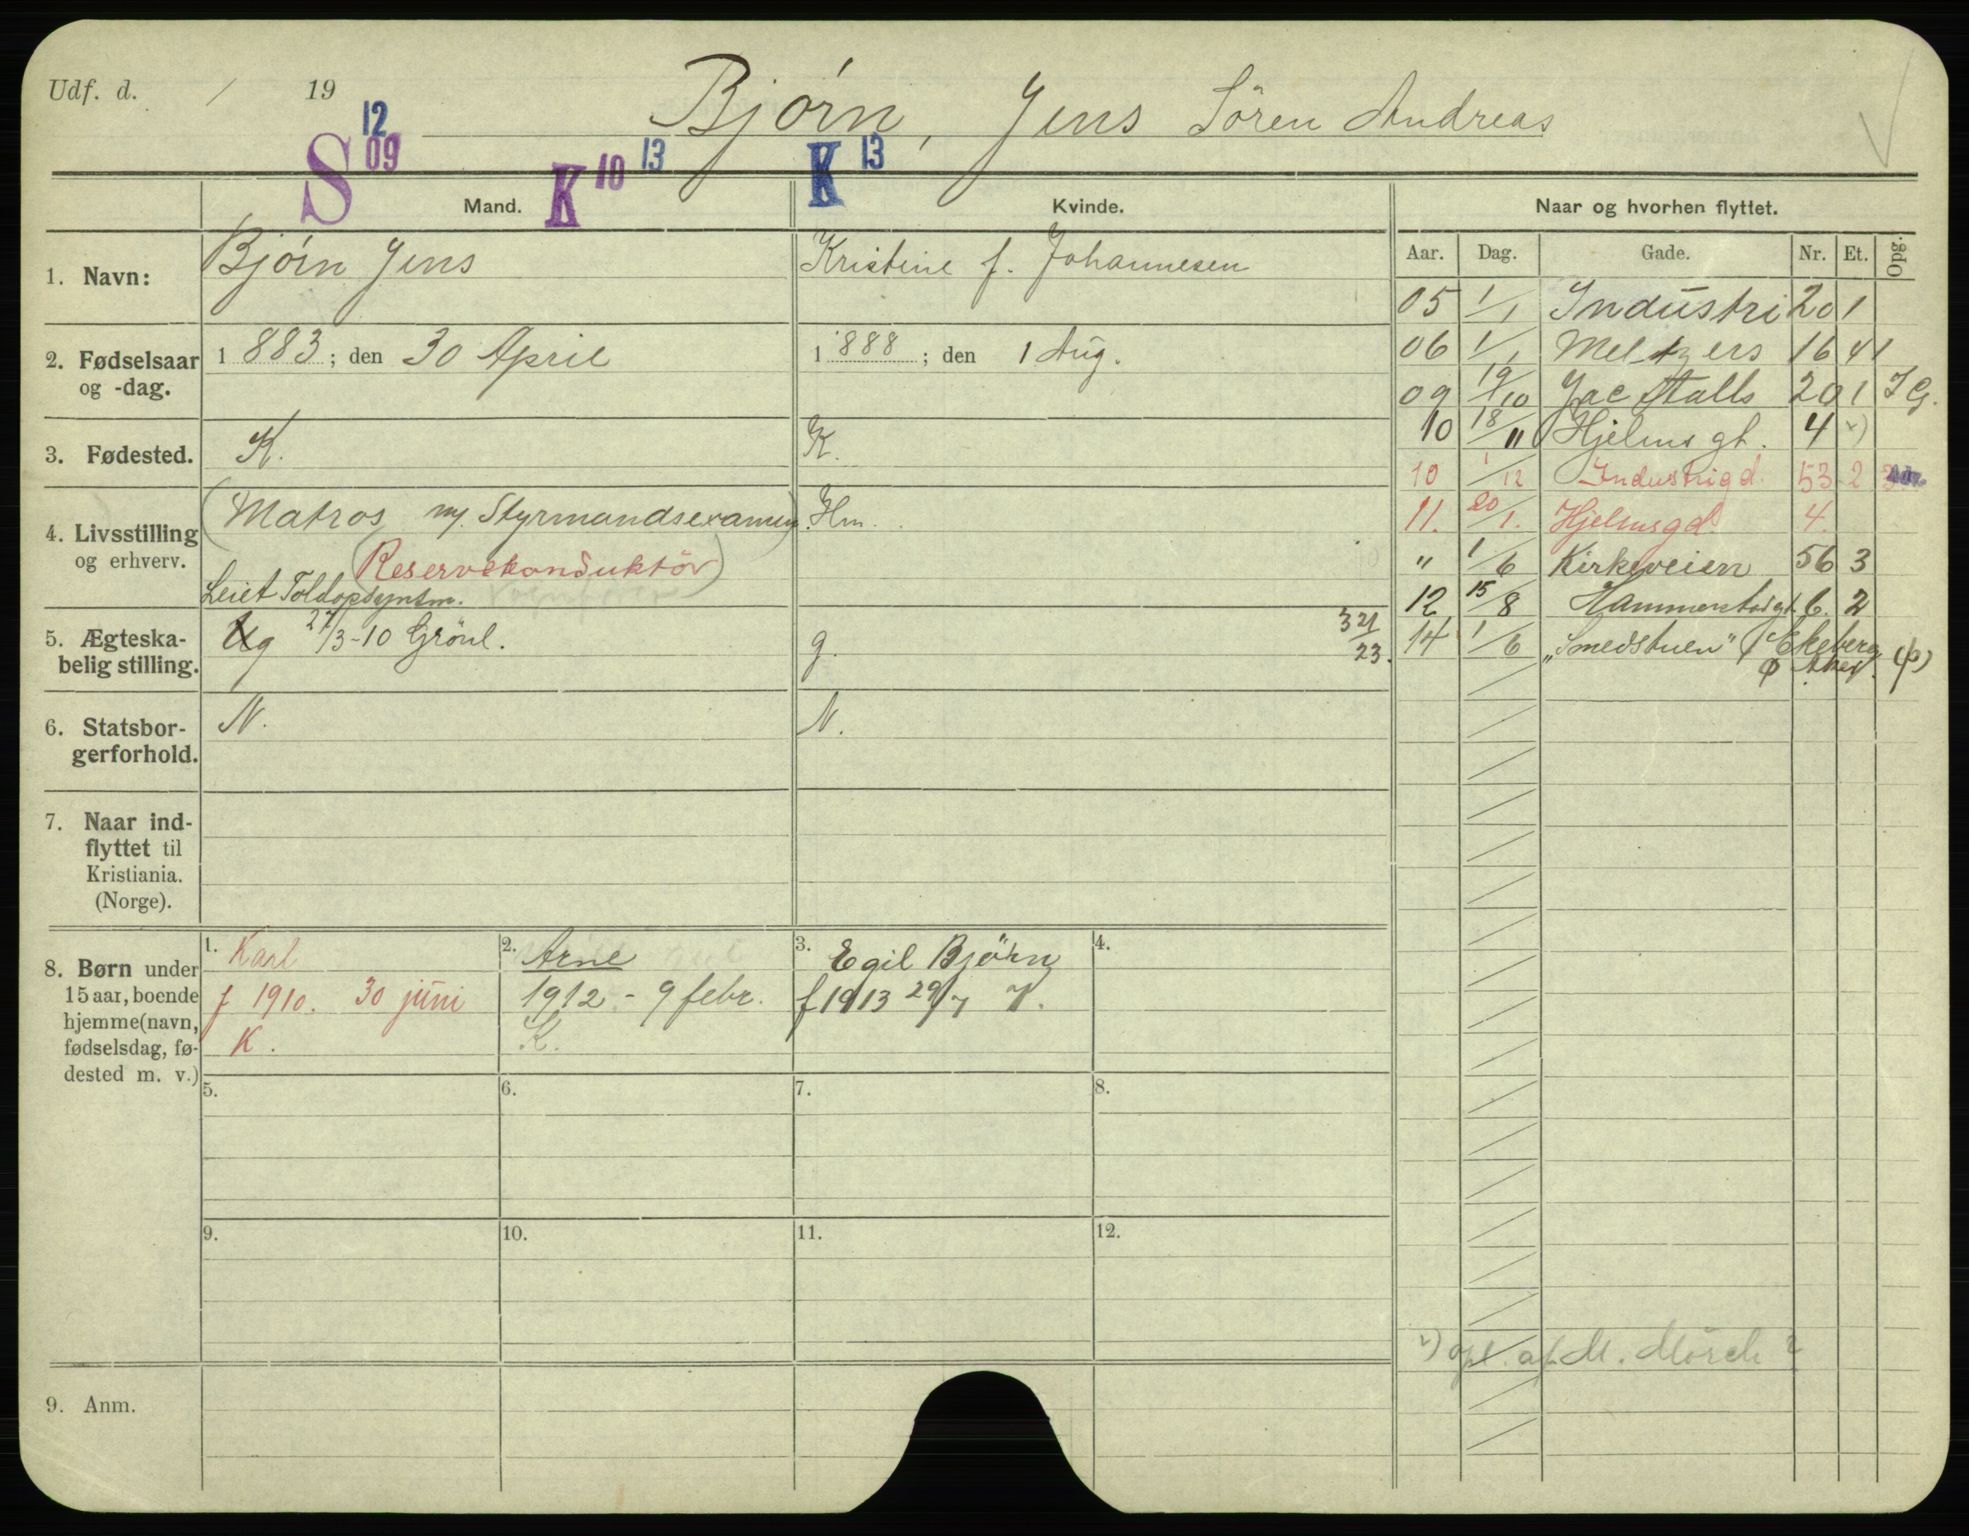 Udf. d. / 19
Bjørn, Jens Sören Andreas
S 12 09 K 10 13 K 13
Mand. Kvinde. Naar og hvorhen flyttet.
Aar. Dag. Gade. Nr. Et. Opg.
1. Navn: Bjørn Jens Kristine f. Johannesen
2. Fødselsaar og -dag. 1 883 ; den 30 April 1 888 ; den 1 Aug.
3. Fødested. K. K.
4. Livsstilling og erhverv. (Matros m/. Styrmandsexamen) Hm.
(Reservekonduktör)
Leiet Toldopsynsm.
5. Ægteskabelig stilling. Ug 27/3-10 Grönl. g. 3 21/23.
6. Statsborgerforhold. N. N.
7. Naar indflyttet til Kristiania. (Norge).
8. Børn under 15 aar, boende hjemme (navn, fødselsdag, fødested m. v.)
1. Karl
f 1910. 30 juni
K.
2. Arne
1912 - 9 febr.
K.
3. Egil Björn
f 1913 29/7
4.
5. 6. 7. 8.
9. 10. 11. 12.
9. Anm.
05 1/1 Industri 20 1
06 1/1 Meltzers 16 4 1
09 19/10 Jac Aalls 20 1 I G.
10 18/11 Hjelms gt. 4 v)
10 1/12 Industrigd. 53 2
11. 20/1. Hjelmsgd. 4.
" 1/6 Kirkeveien 56 3
12 15/8 Hammerstadgt. 6. 2
14 1/6 „Smedstuen" Ekeberg
Aker.
v) opl. af M. Mörch